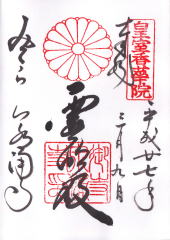 皇室香華院
奉拝
平成廿七年
三月九日
霊明殿
みてら
泉涌寺